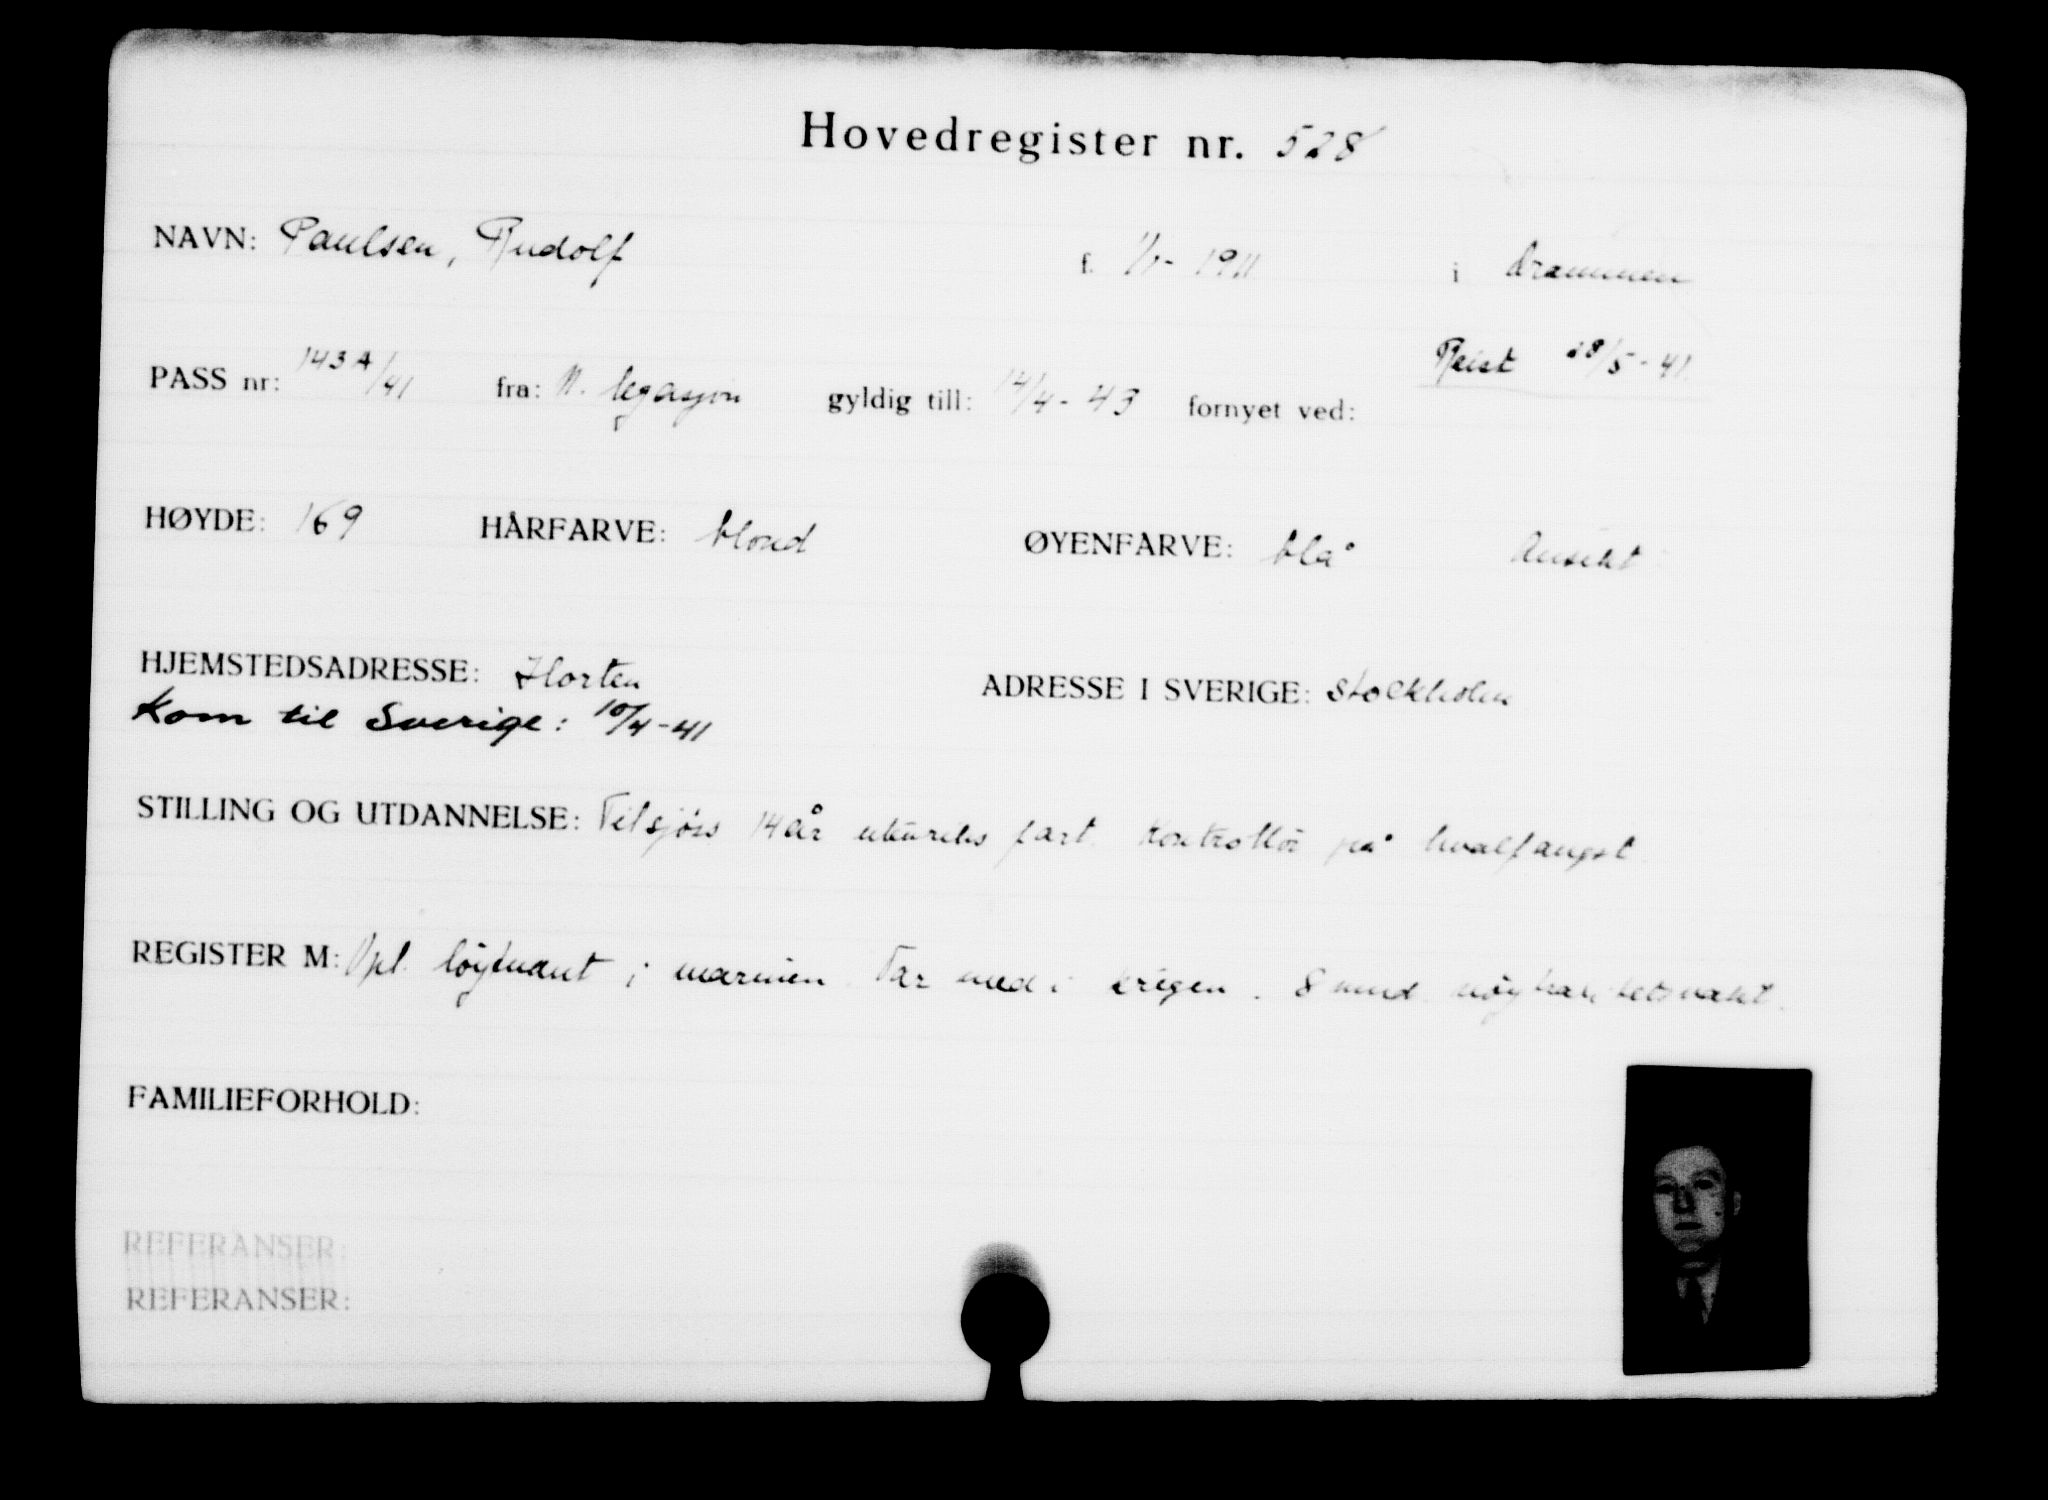 Hovedregister nr. 528
NAVN: Paulsen, Rudolf f. 1/1- 1911 i Drammen
Reist 28/5-41
PASS nr: 143A/41 fra: N. legasjon gyldig till: 14/4-43 fornyet ved:
HØYDE: 169 HÅRFARVE: blond ØYENFARVE: blå Ansikt
HJEMSTEDSADRESSE: Horten ADRESSE I SVERIGE: Stockholm
Kom til Sverige: 10/4-41
STILLING OG UTDANNELSE: Tilsjøss 14 år utenriks fart. Kontrollør på hvalfangst.
REGISTER M: løytnant i marinen. Var med i krigen. 8 mnd. nøytralitetsvakt.
FAMILIEFORHOLD:
REFERANSER:
REFERANSER: